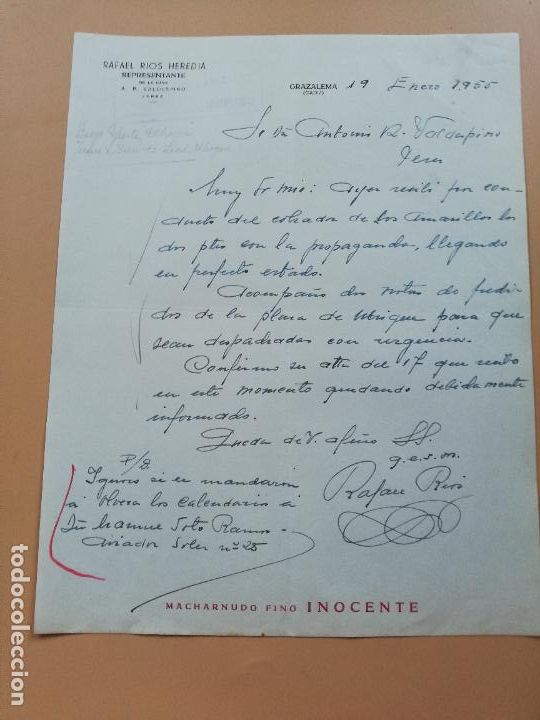 RAFAEL RIOS HEREDIA
REPRESENTANTE
DE LA CASA
A. R. VALDESPINO
JEREZ
GRAZALEMA 19 Enero 1.955
(CADIZ)
Sr Dn Antonio R. Valdespino
Jerez
Muy Sr mio: Ayer recibí por con-
ducto del cobrador de los Amarillos los
dos ptes con la propaganda, llegando
en perfecto estado.
Acompaño dos notas de pedi-
dos de la plaza de Ubrique para que
sean despachadas con urgencia.
Confirmo su atta del 17 que recibo
en este momento quedando debidamente
informado.
Queda de V. afmo SS.
q.e.s.m.
Rafael Rios
P/D.
Ignoro si se mandaron
a Olvera los calendarios a
Dn Manuel Soto Ramos-
Aviador Soler nº 25
MACHARNUDO FINO INOCENTE
todocoleccion